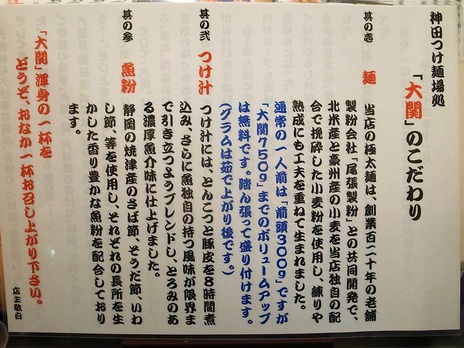 神田つけ麺場処
「大関」のこだわり
其の壱 麺
当店の極太麺は、創業百二十年の老舗
製粉会社「尾張製粉」との共同開発で、
北米産と豪州産の小麦を当店独自の配
合で挽砕した小麦粉を使用し、練りや
熟成にも工夫を重ねて生まれました。
通常の一人前は「前頭300g」ですが
「大関750g」までのボリュームアップ
は無料です。踏ん張って盛り付けます。
(グラムは茹で上がり後です。)
其の弐 つけ汁
つけ汁には、とんこつと豚皮を8時間煮
込み、さらに魚独自の持つ風味が限界ま
で引き立つようブレンドし、とろみのあ
る濃厚魚介味に仕上げました。
其の参 魚粉
静岡の焼津産のさば節、そうだ節、いわ
し節、等を使用し、それぞれの長所を生
かした香り豊かな魚粉を配合しており
ます。
「大関」渾身の一杯を
どうぞ、おなか一杯お召し上がり下さい。
店主敬白